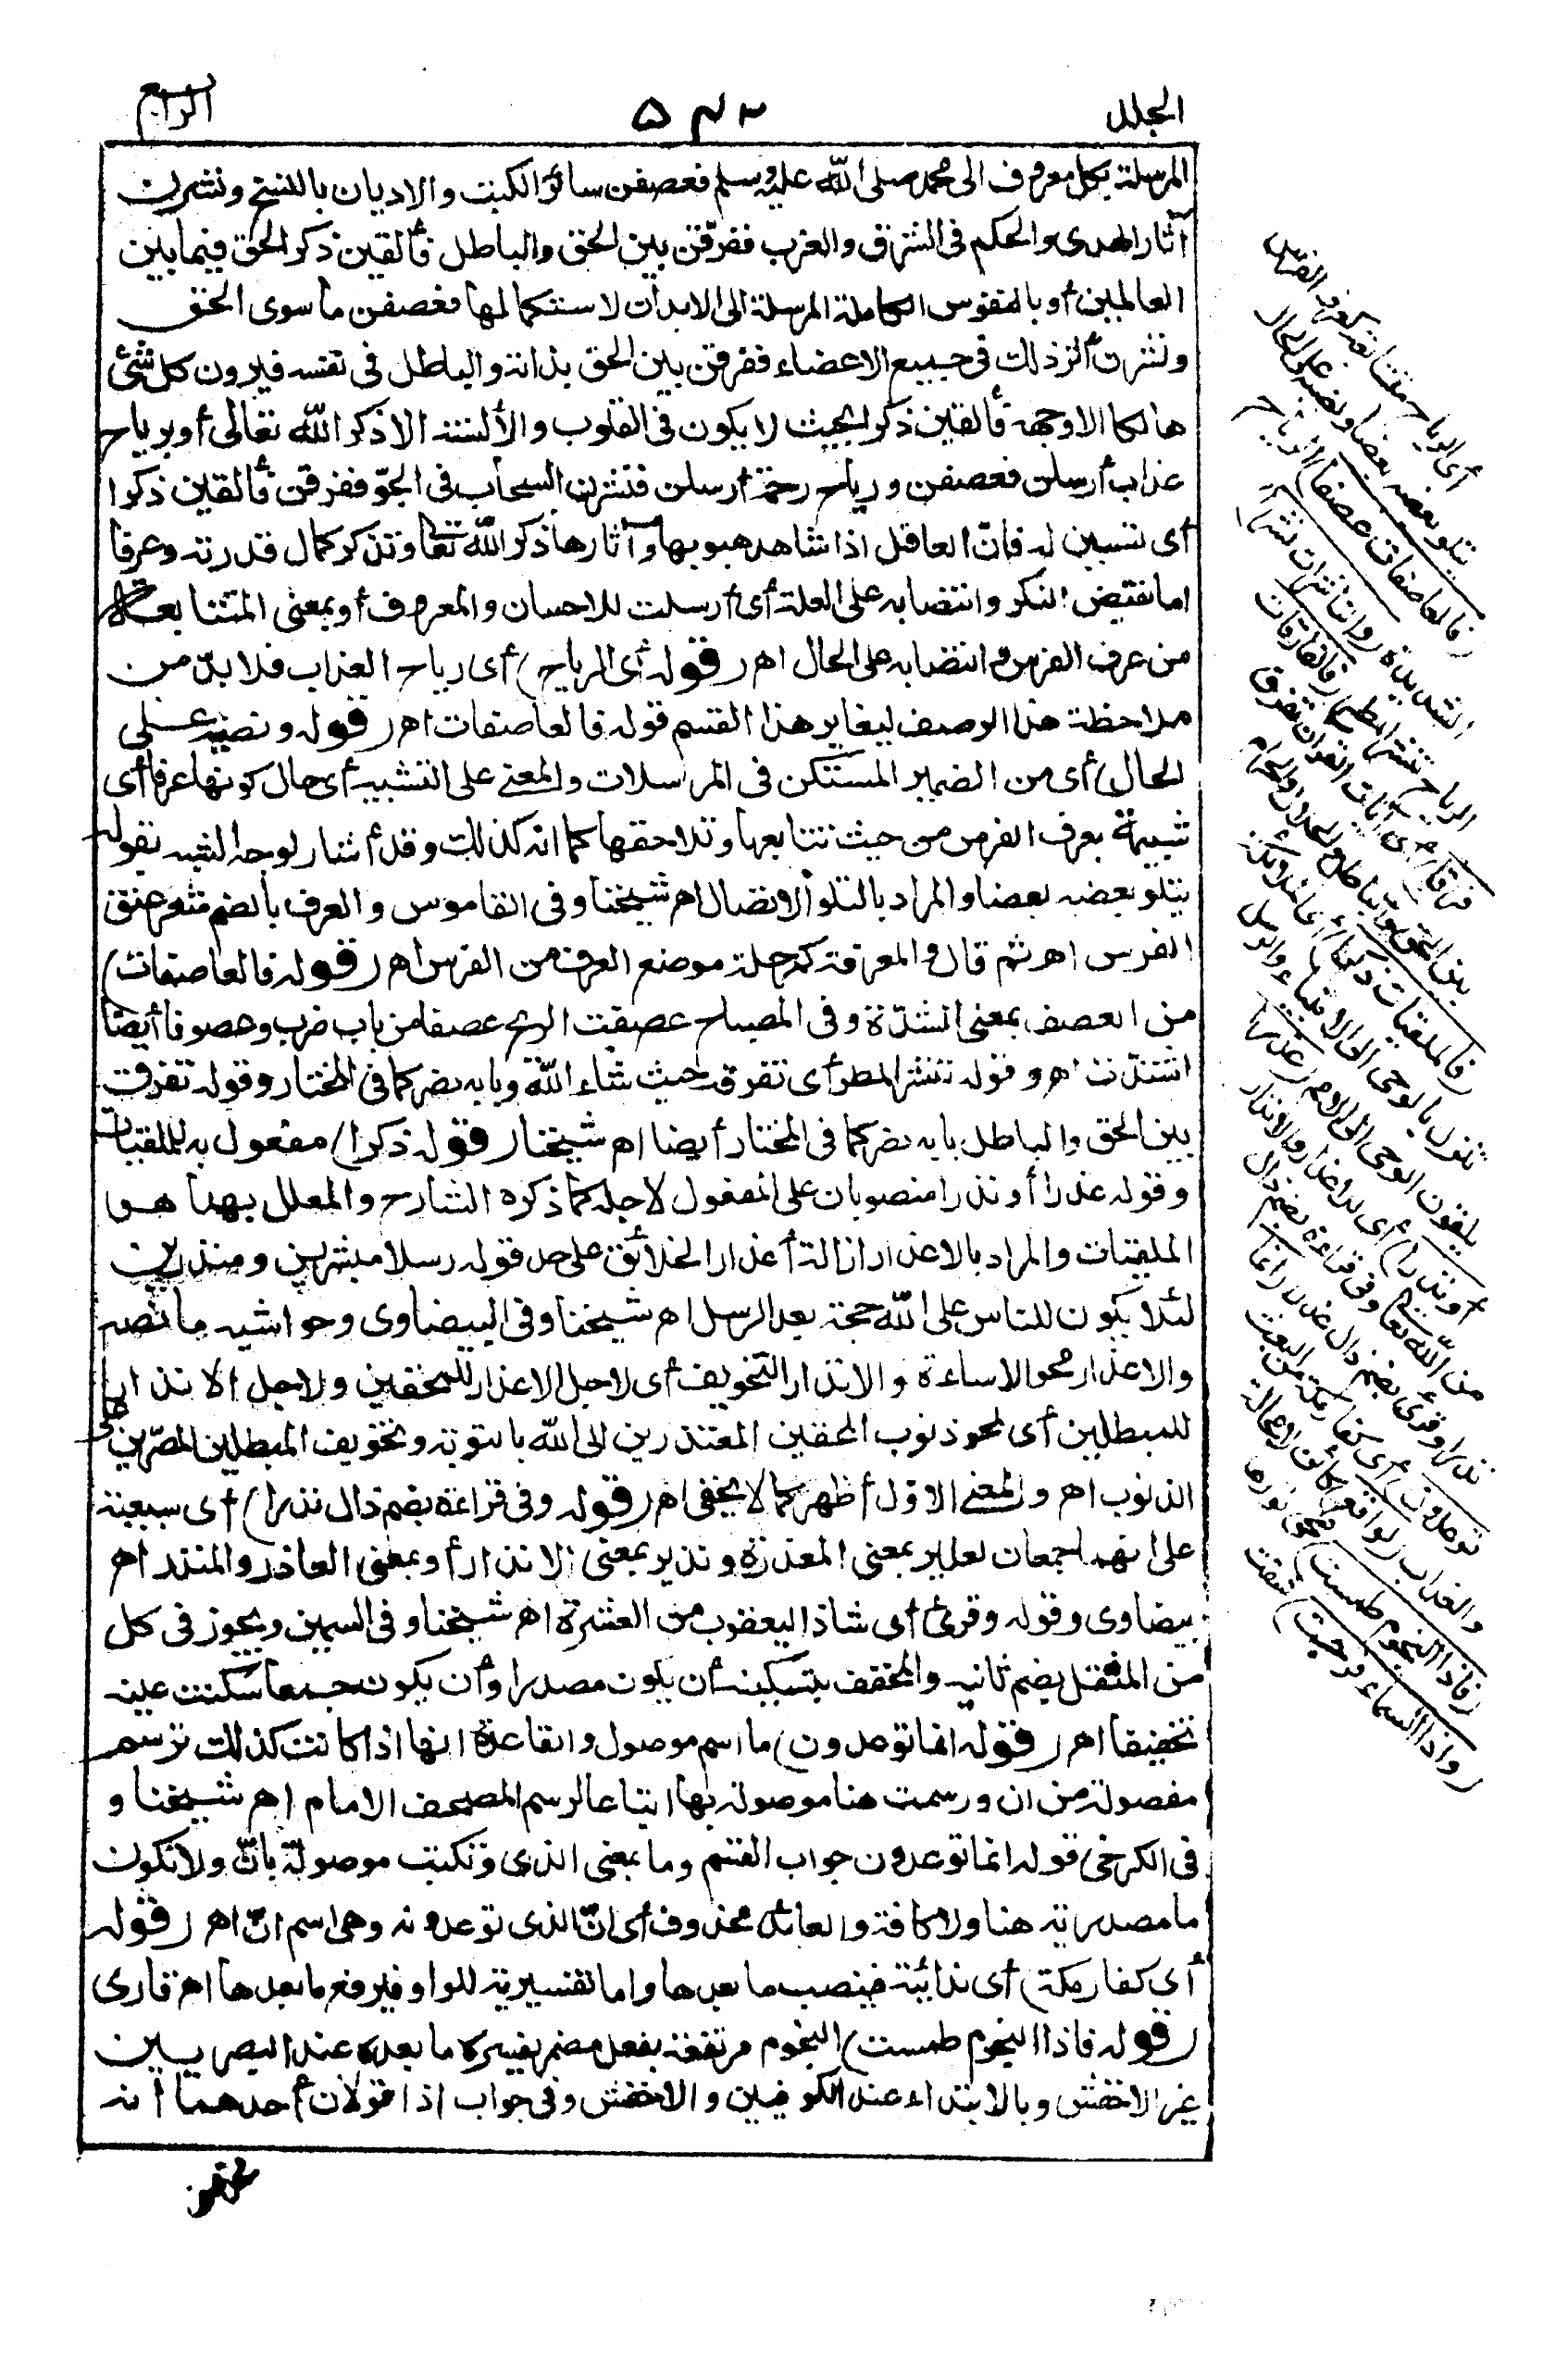 المجلد
٥٤٣
الرابع
المرسلة بكل معروف الى محمد صلى الله عليه وسلم فعصفن سائر الكتب والاديان بالنسخ ونشرن
آثار الهدى والحكم فى الشرق والغرب ففرّقن بين الحق والباطل فألقين ذكر الحق فيما بين
العالمين أو بالنفوس الكاملة المرسلة الى الابدان لاستكمالها فعصفن ما سوى الحق
ونشرن أثر ذلك فى جميع الاعضاء ففرقن بين الحق بذاته والباطل فى نفسه فيرون كل شئ
هالكا الا وجهه فألقين ذكرا بحيث لا يكون فى القلوب والألسنة الا ذكر الله تعالى أو برياح
عذاب أرسلن فعصفن ورياح رحمة أرسلن فنشرن السحاب فى الجوّ ففرقن فألقين ذكرا
أى تسببن له فانّ العاقل اذا شاهد هبوبها وآثارها ذكر الله تعا وتذكر كمال قدرته وعرفا
اما نقيض النكر وانتصابه على العلة أى أرسلت للاحسان والمعروف أو بمعنى المتتابعة
من عرف الفرس وانتصابه على الحال اهـ (قوله أى الرياح) أى رياح العذاب فلا بدّ من
ملاحظة هذا الوصف ليغاير هذا القسم قوله فالعاصفات اهـ (قوله ونصبه على
الحال) أى من الضمير المستكن فى المرسلات والمعنى على التشبيه أى حال كونها عرفا أى
شبيهة بعرف الفرس من حيث تتابعها وتلاحقها كما انه كذلك وقد أشار لوجه الشبه بقوله
يتلو بعضه بعضا والمراد بالتلو الاتصال اهـ شيخنا وفى القاموس والعرف بالضم شعر عنق
الفرس اهـ ثم قال والمعرفة كمرحلة موضع العرف من الفرس اهـ (قوله فالعاصفات)
من العصف بمعنى الشدّة وفى المصباح عصفت الريح عصفا من باب ضرب وعصوفا أيضا
اشتدّت اهـ وقوله تنشر المطر أى تفرق حيث شاء الله وبابه نصر كما فى المختار وقوله تفرقت
بين الحق والباطل بابه نصر كما فى المختار أيضا اهـ شيخنا (قوله ذكرا) مفعول به للملقيات
وقوله عذرا أو نذرا منصوبان على المفعول لاجله كما ذكره الشارح والمعلل بهما هو
الملقيات والمراد بالاعذار ازالة أعذار الخلائق على حد قوله رسلا مبشرين ومنذرين
لئلا يكون للناس على الله حجة بعد الرسل اهـ شيخنا وفى البيضاوى وحواشيه ما نصه
والاعذار محو الاساءة والانذار التخويف أى لاجل الاعذار للمحقين ولاجل الانذار
للمبطلين أى لمحو ذنوب المحقين المعتذرين الى الله بالتوبة وتخويف المبطلين المصّرين على
الذنوب اهـ والمعنى الاوّل أظهر كما لا يخفى اهـ (قوله وفى قراءة بضم ذال نذرا) أى سبعية
على انهما جمعان لعذير بمعنى المعذرة ونذير بمعنى الانذار أو بمعنى العاذر والمنذر اهـ
بيضاوى وقوله وقرئ أى شاذا ليعقوب من العشرة اهـ شيخنا وفى السمين ويجوز فى كل
من المثقل بضم ثانيه والمخفف بتسكينه أن يكون مصدرا وأن يكون جمعا سكنت عينه
تخفيفا اهـ (قوله انما توعدون) ما اسم موصول والقاعدة انها اذا كانت كذلك ترسم
مفصولة من ان ورسمت هنا موصولة بها اتباعا لرسم المصحف الامام اهـ شيخنا و
فى الكرخى قوله انما توعدون جواب القسم وما بمعنى الذى وتكتب موصولة بانّ ولا تكون
ما مصدرية هنا ولا كافة والعائد محذوف أى انّ الذى توعدونه وهى اسم انّ اهـ (قوله
أى كفار مكة) أى ندائية فينصب ما بعدها واما تفسيرية للواو فيرفع ما بعدها اهـ قارى
(قوله فاذا النجوم طمست) النجوم مرتفعة بفعل مضمر يفسره ما بعده عند البصريين
غير الاخفش وبالابتداء عند الكوفيين والاخفش وفى جواب اذا قولان أحدهما أنه
أى الرياح متتابعة كعرف الفرس
يتلو بعضه بعضا ونصبه على الحال
(فالعاصفات عصفا) الرياح
الشديدة (والناشرات نشرا)
الرياح تنشر المطر (فالفارقات
فرقا) أى آيات القرآن تفرق
بين الحق والباطل والحلال والحرام
(فالملقيات ذكرا) أى الملائكة
تنزل بالوحى الى الانبياء والرسل
يلقون الوحى الى الامم (عذرا
أو نذرا) أى للاعذار والانذار
من الله تعا وفى قراءة بضم ذال
نذرا وقرئ بضم ذال عذرا (انما
توعدون) أى كفار مكة من البعث
والعذاب (لواقع) كائن لا محالة
(فاذا النجوم طمست) محى نورها
(واذا السماء فرجت) شقت